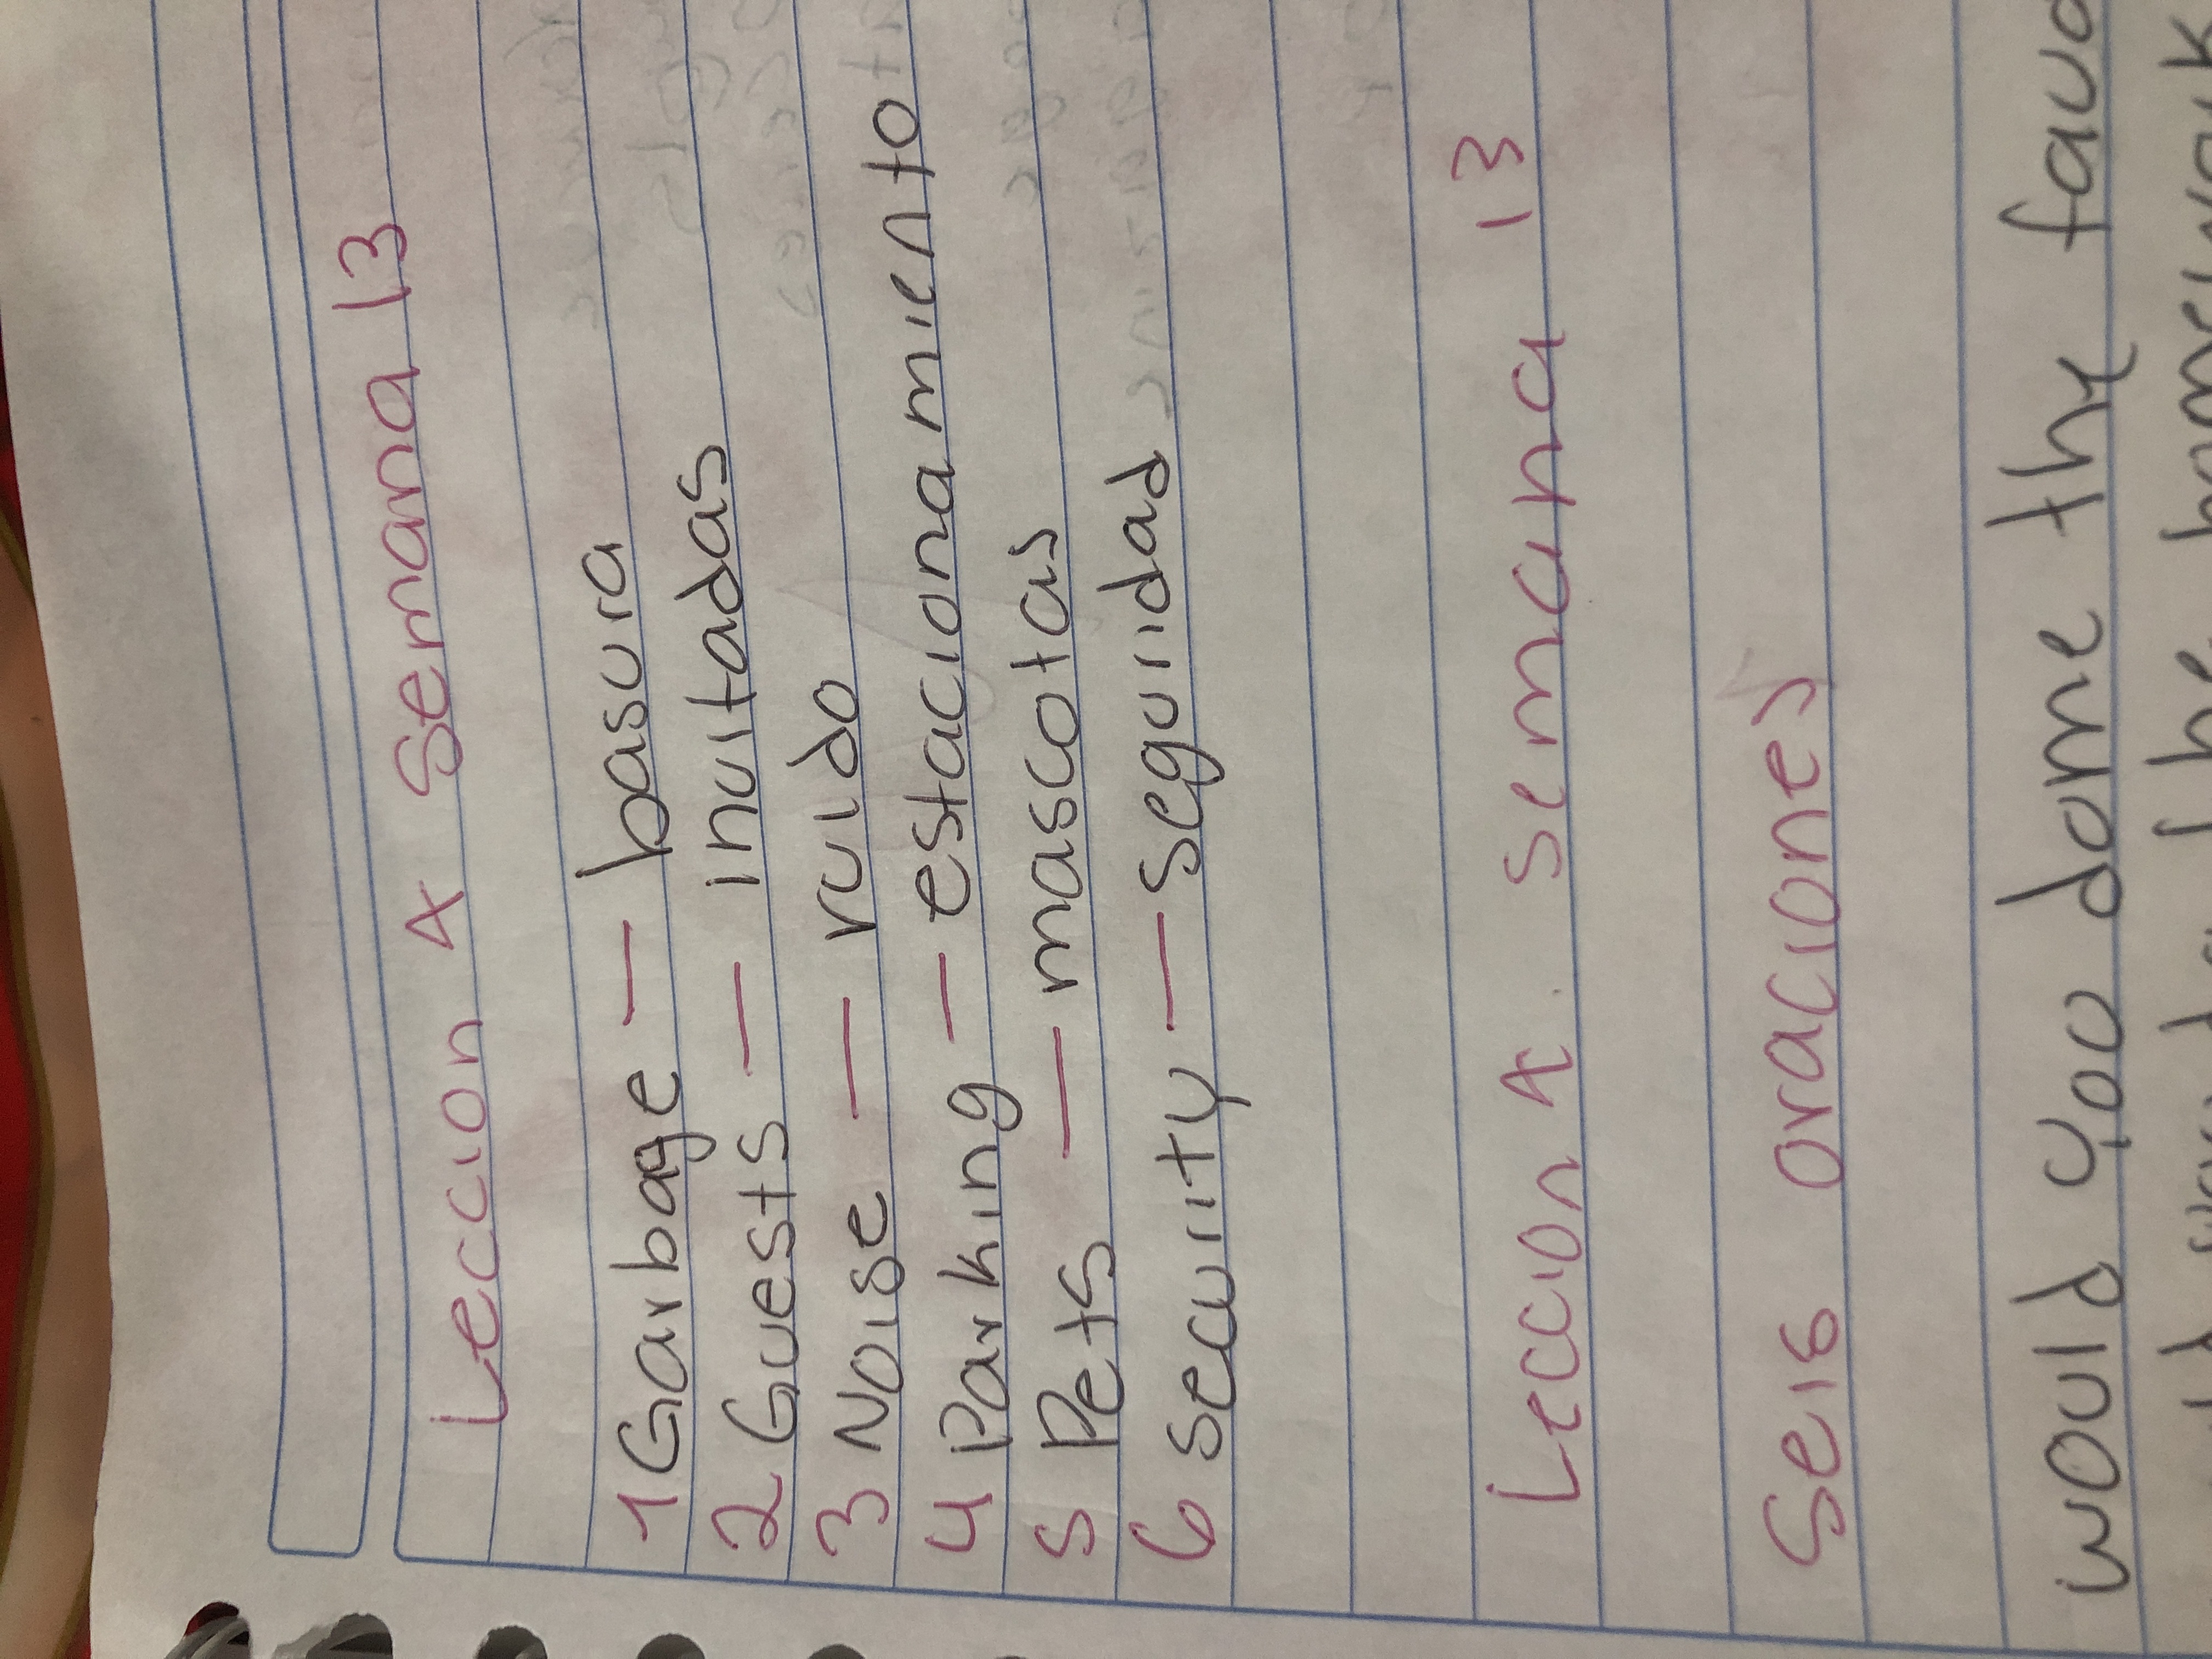 Leccion A Semana 13
1 Garbage — basura
2 Guests — invitadas
3 Noise — ruido
4 Parking — estacionamiento
5 Pets — mascotas
6 security — seguridad
Leccion A. semana 13
Seis oraciones
would you dome the favo
the homework